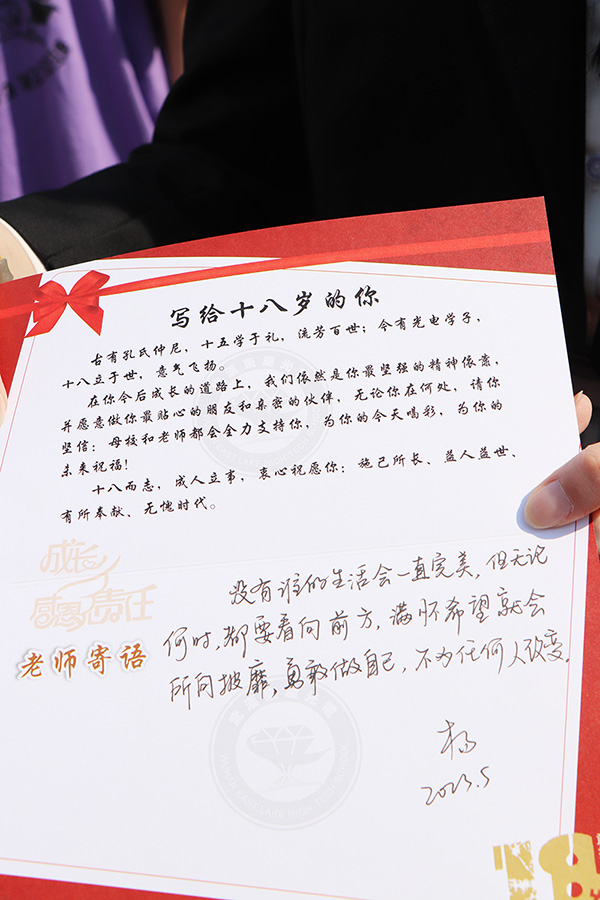 写给十八岁的你
古有孔氏仲尼，十五学于礼，流芳百世；今有光电学子，
十八立于世，意气飞扬。
在你今后成长的道路上，我们依然是你最坚强的精神依靠，
并愿意做你最贴心的朋友和亲密的伙伴，无论你在何处，请你
坚信：母校和老师都会全力支持你，为你的今天喝彩，为你的
未来祝福！
十八而志，成人立事，衷心祝愿你：施己所长、益人益世、
有所奉献、无愧时代。
成长
感恩 责任
老师寄语
没有谁的生活会一直完美，但无论
何时，都要看向前方，满怀希望就会
所向披靡，勇敢做自己，不为任何人改变。
杨
2023.5
18